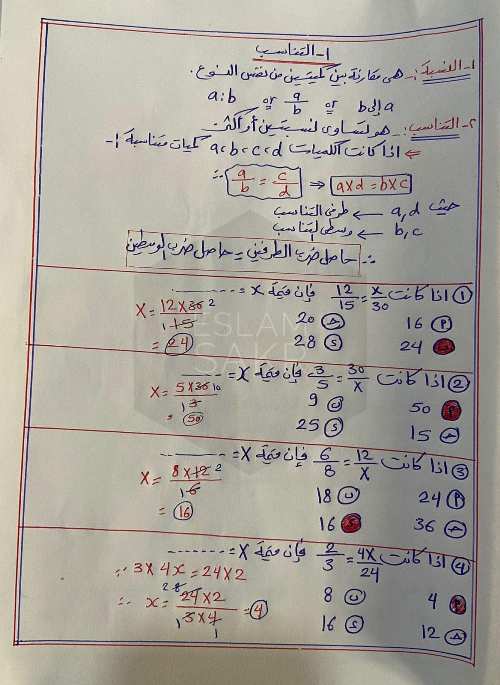 ١- التناسب
١- النسبة :- هى مقارنة بين كميتين من نفس النوع.
a إلى b or a/b or a:b
٢- التناسب :- هو تساوى نسبتين أو أكثر
⇐ اذا كانت الكميات a, b, c, d كميات متناسبة :-
∴ a/b = c/d ⇒ a×d = b×c
حيث a, d ← طرفى التناسب
b, c ← وسطى التناسب
∴ حاصل ضرب الطرفين = حاصل ضرب الوسطين
① اذا كانت 12/15 = x/30 فإن قيمة x = --------
16 20
24 28
x = 12×30/15
= 24
② اذا كانت 3/5 = 30/x فإن قيمة x = --------
50 9
15 25
x = 5×30/3
= 50
③ اذا كانت 6/8 = 12/x فإن قيمة x = --------
24 18
36 16
x = 8×12/6
= 16
④ اذا كانت 2/3 = 4x/24 فإن قيمة x = --------
4 8
12 16
∵ 3×4x = 24×2
∴ x = 24×2/3×4 = 4
ESLAM
SAKR